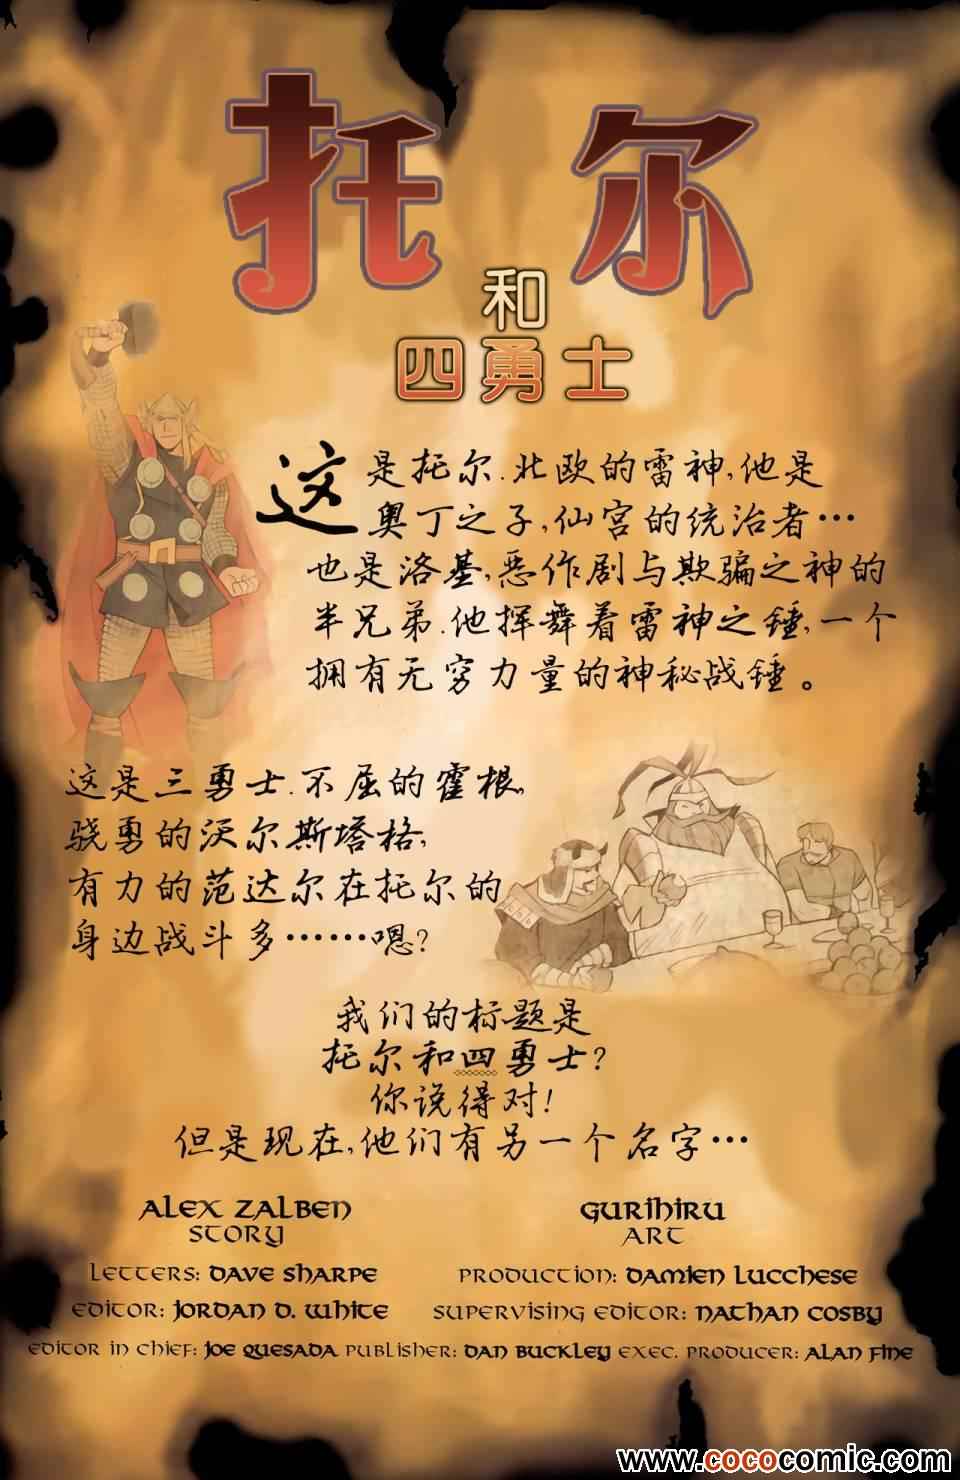 托 尔
和
四勇士
这是托尔.北欧的雷神,他是
奥丁之子,仙宫的统治者…
也是洛基,恶作剧与欺骗之神的
半兄弟.他挥舞着雷神之锤,一个
拥有无穷力量的神秘战锤。
这是三勇士.不屈的霍根,
骁勇的沃尔斯塔格,
有力的范达尔在托尔的
身边战斗多……嗯?
我们的标题是
托尔和四勇士?
你说得对!
但是现在,他们有另一个名字…
ALEX ZALBEN
STORY
GURIHIRU
ART
LETTERS: DAVE SHARPE
PRODUCTION: DAMIEN LUCCHESE
EDITOR: JORDAN D. WHITE
SUPERVISING EDITOR: NATHAN COSBY
EDITOR IN CHIEF: JOE QUESADA PUBLISHER: DAN BUCKLEY EXEC. PRODUCER: ALAN FINE
www.cococomic.com